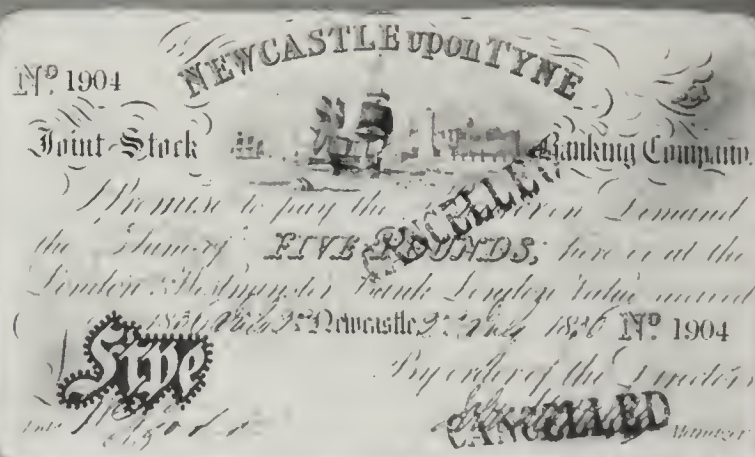 NEWCASTLE upon TYNE
Nº. 1904
Joint-Stock Banking Company
CANCELLED
Promise to pay the on Demand
the Sum of FIVE POUNDS, here or at the
London & Westminster Bank London Value received
1836 Newcastle 1836 Nº 1904
Five
By order of the Directors
CANCELLED
Manager